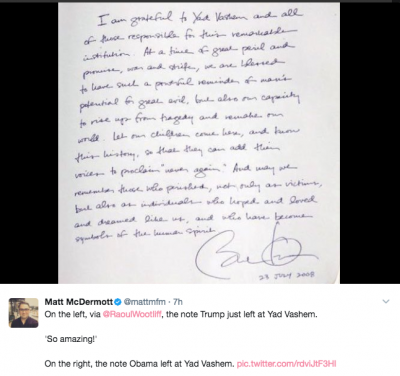 I am grateful to Yad Vashem and all
of those responsible for this remarkable
institution. At a time of great peril and
promise, war and strife, we are blessed
to have such a powerful reminder of man's
potential for great evil, but also our capacity
to rise up from tragedy and remake our
world. Let our children come here, and know
this history, so that they can add their
voices to proclaim "never again." And may we
remember those who perished, not only as victims,
but also as individuals who hoped and loved
and dreamed like us, and who have become
symbols of the human spirit.
23 JULY 2008
Matt McDermott @mattmfm · 7h
On the left, via @RaoulWootliff, the note Trump just left at Yad Vashem.
'So amazing!'
On the right, the note Obama left at Yad Vashem. pic.twitter.com/rdviJtF3HI